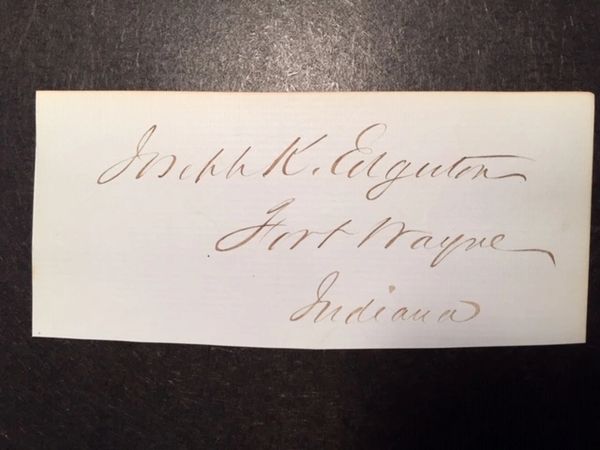 Joseph K. Edgerton
Fort Wayne
Indiana